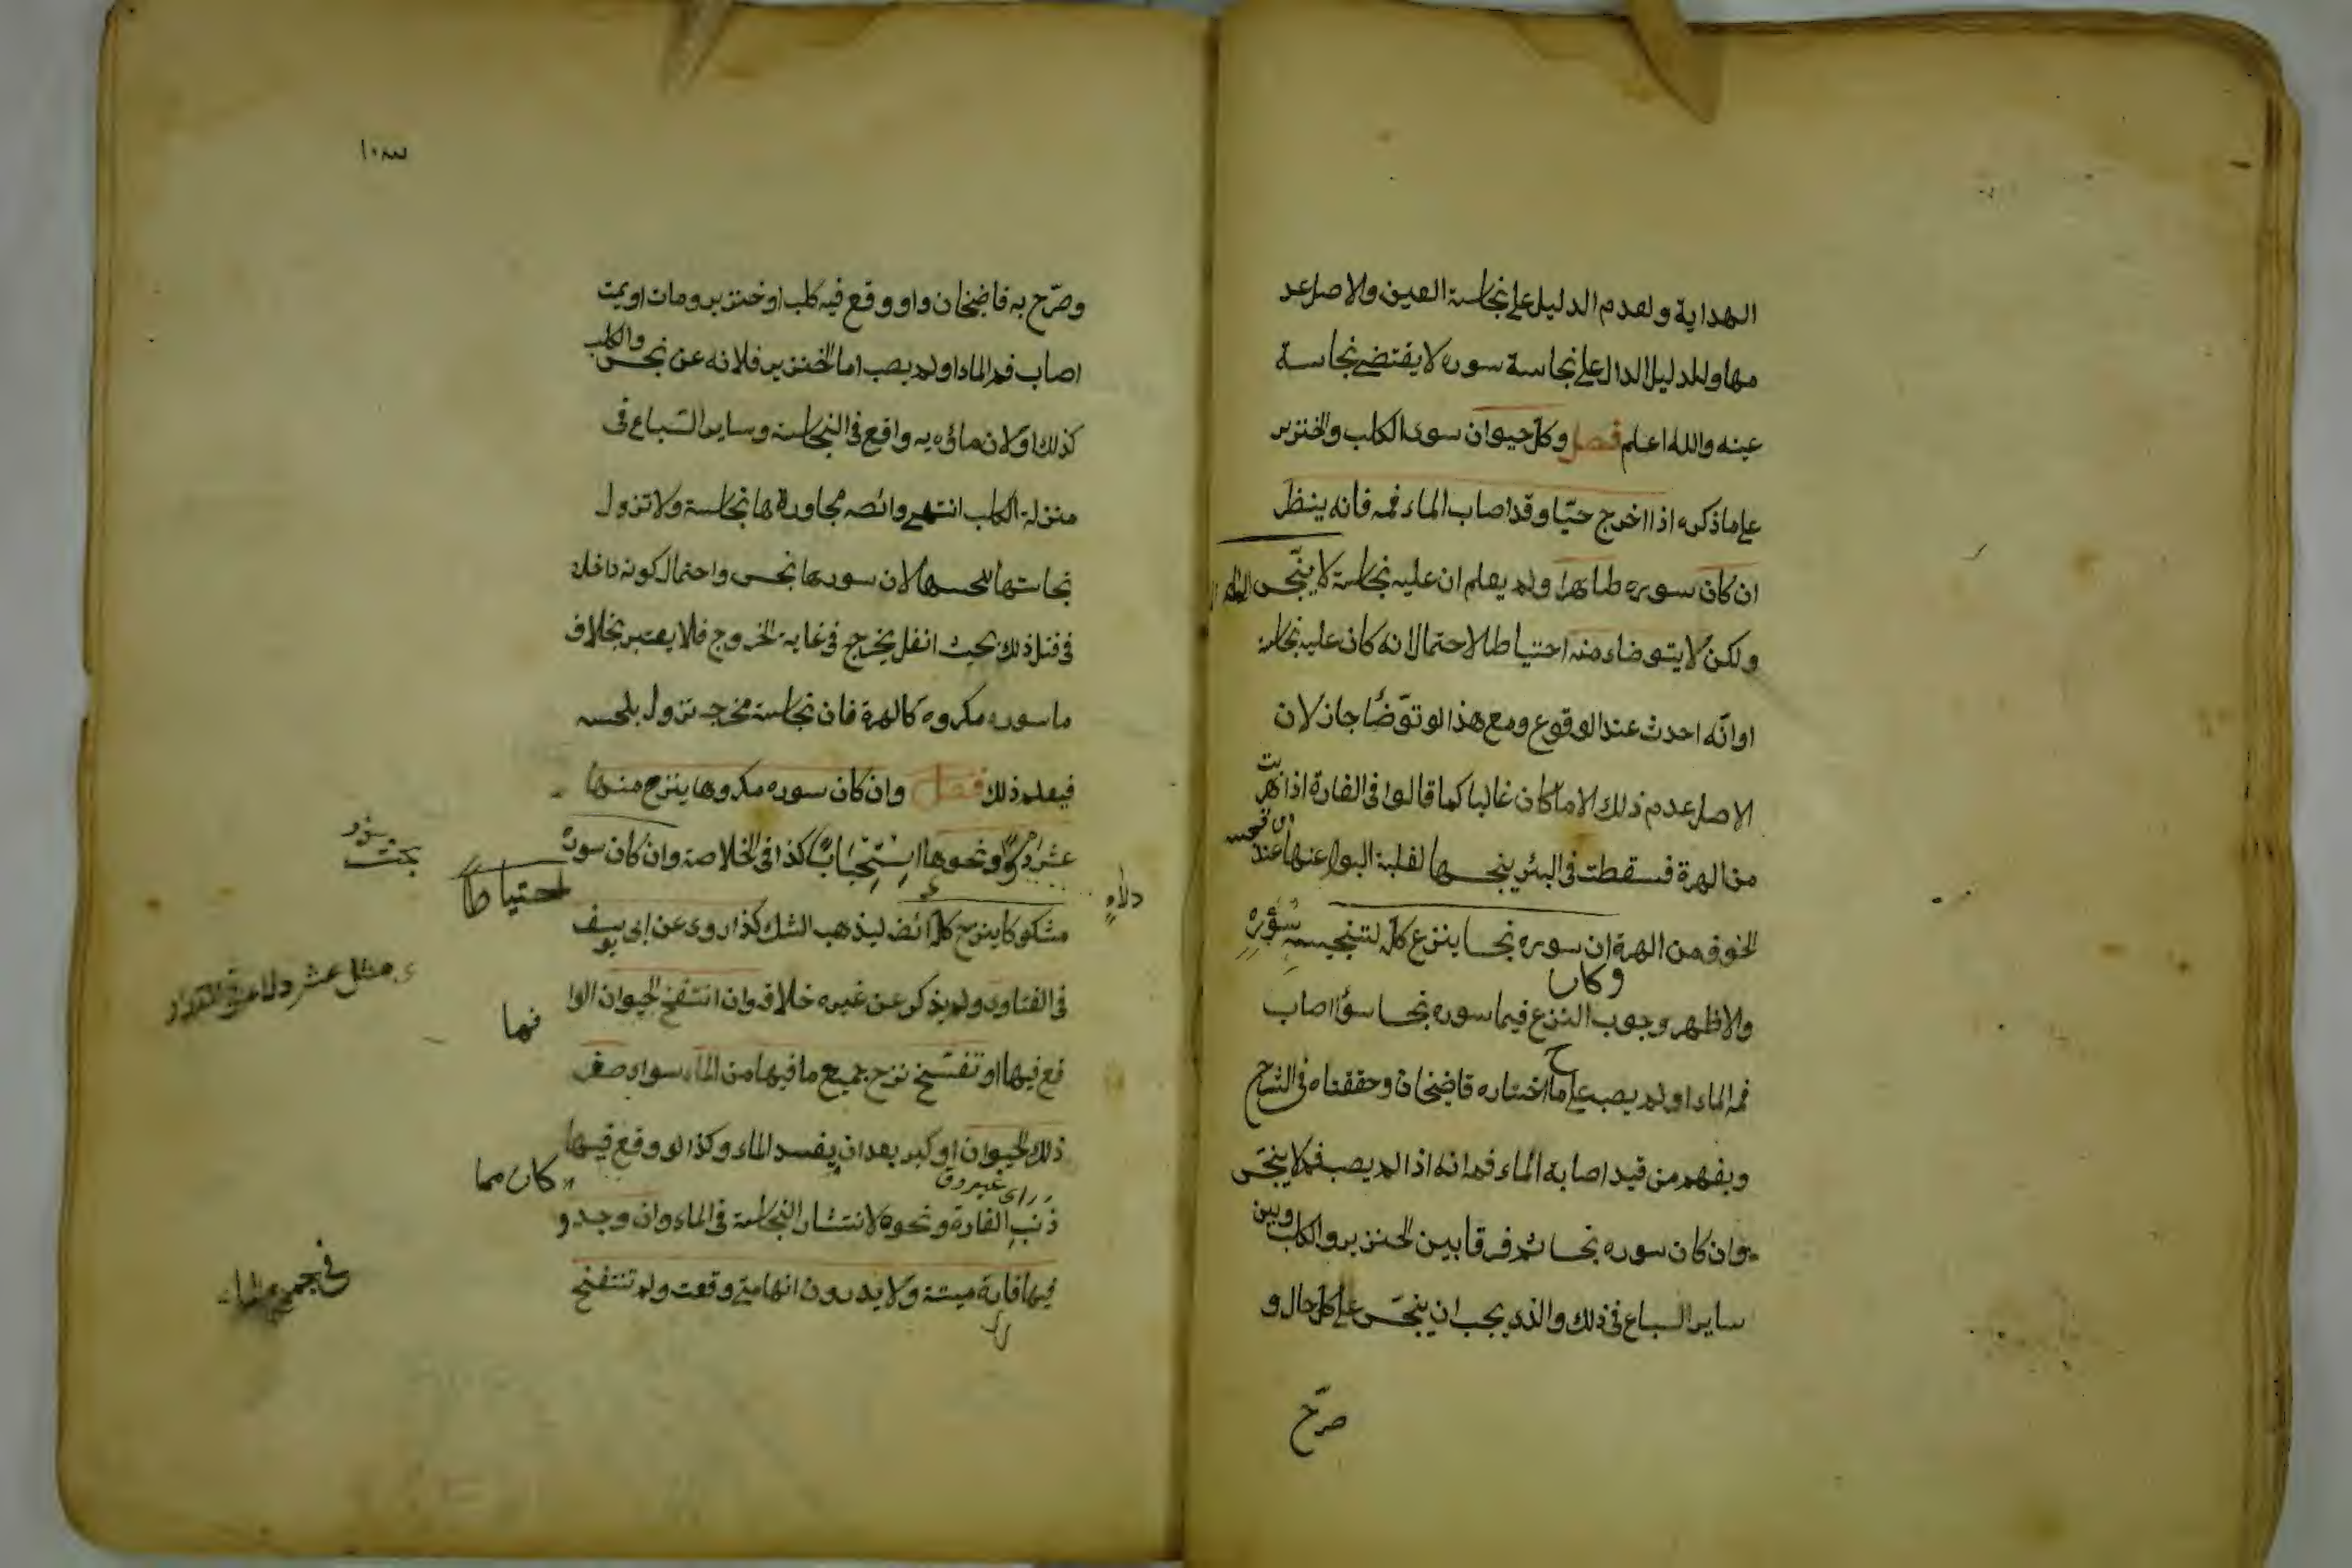 الهداية ولعدم الدليل على نجاسة العين والاصل عد
مها ولدليل الدال على نجاسة سوره لا يقتضي نجاسة
عينه والله اعلم فصل وكل حيوان سوى الكلب والخنزير
على ما ذكره اذا اخرج حيّا وقد اصاب الماء فمه فانه ينظر
ان كان سوره طاهرا ولم يعلم ان عليه نجاسة لا ينجّس الماء
ولكن لا يتوضاء منه احتياطا لاحتمال انه كان عليه نجاسة
او انّه احدث عند الوقوع ومع هذا لو توّضأ جاز لان
الاصل عدم ذلك الا ما كان غالبا كما قالوا في الفارة اذا هربت
من الهرة فسقطت في البئر ينجسها لغلبة البول عنها عند
الخوف من الهرة ان سوره نجسا ينزع كل لتنجيسه
سُؤره
وكان
والاظهر وجوب النزع فيما سوره نجسا سوأ اصاب
فمه الماء او لم يصب على ما اختاره قاضيخان وحققناه في الشرح
ويفهم من قيد اصابة الماء فمه انه اذا لم يصب فمه لا ينجّس
وان كان سوره نجسا ثم فرقا بين الخنزير والكلب وبين
ساير السباع في ذلك والذي يجب ان ينجّس على كل حال و
صرّح
وصرّح به قاضيخان واو وقع فيه كلب او خنزير ومات او يمت
اصاب فمه الماء او لم يصب اما الخنزير فلانه عن نجس والكلب
كذلك اولان ماؤيه واقع في النجاسة وساير السّباع في
منزلة الكلب انتهى وائصه مجاورة ها نجاسة ولا تزول
نجاستها بلحسها لان سورها نجس واحتمال كونه داخلا
ذلك بحيث يخرج في غاية الخروج فلا يعتبر بخلاف
ما سوره مكروه كالهرة فان نجاسة مخرجه تزول بلحسه
فيعلم ذلك فصل وان كان سوره مكروها ينزح منها
عشر دلو ونحوها اسْتِحْبَابًا كذا في الخلاصة وان كان سوره
دلاءٍ
احتياطاً
مشكوكا ينزح كل ائض ليذهب الشك كذا روى عن ابي يوسف
مثل عشر دلاء
في الفتاوى ولم يذكر عن غيره خلاف وان انتفخ الحيوان الوا
فيها
قع فيها او تفسّخ نزح جميع ما فيها من الماء سواء صغر
ذلك الحيوان او كبر بعد ان يفسد الماء وكذا لو وقع فيها
كان مما
ذنب الفارة ونحوه لانتشار النجاسة في الماء وان وجدو
فيها فارة ميتة ولا يدرون انها متى وقعت ولم تنتفخ